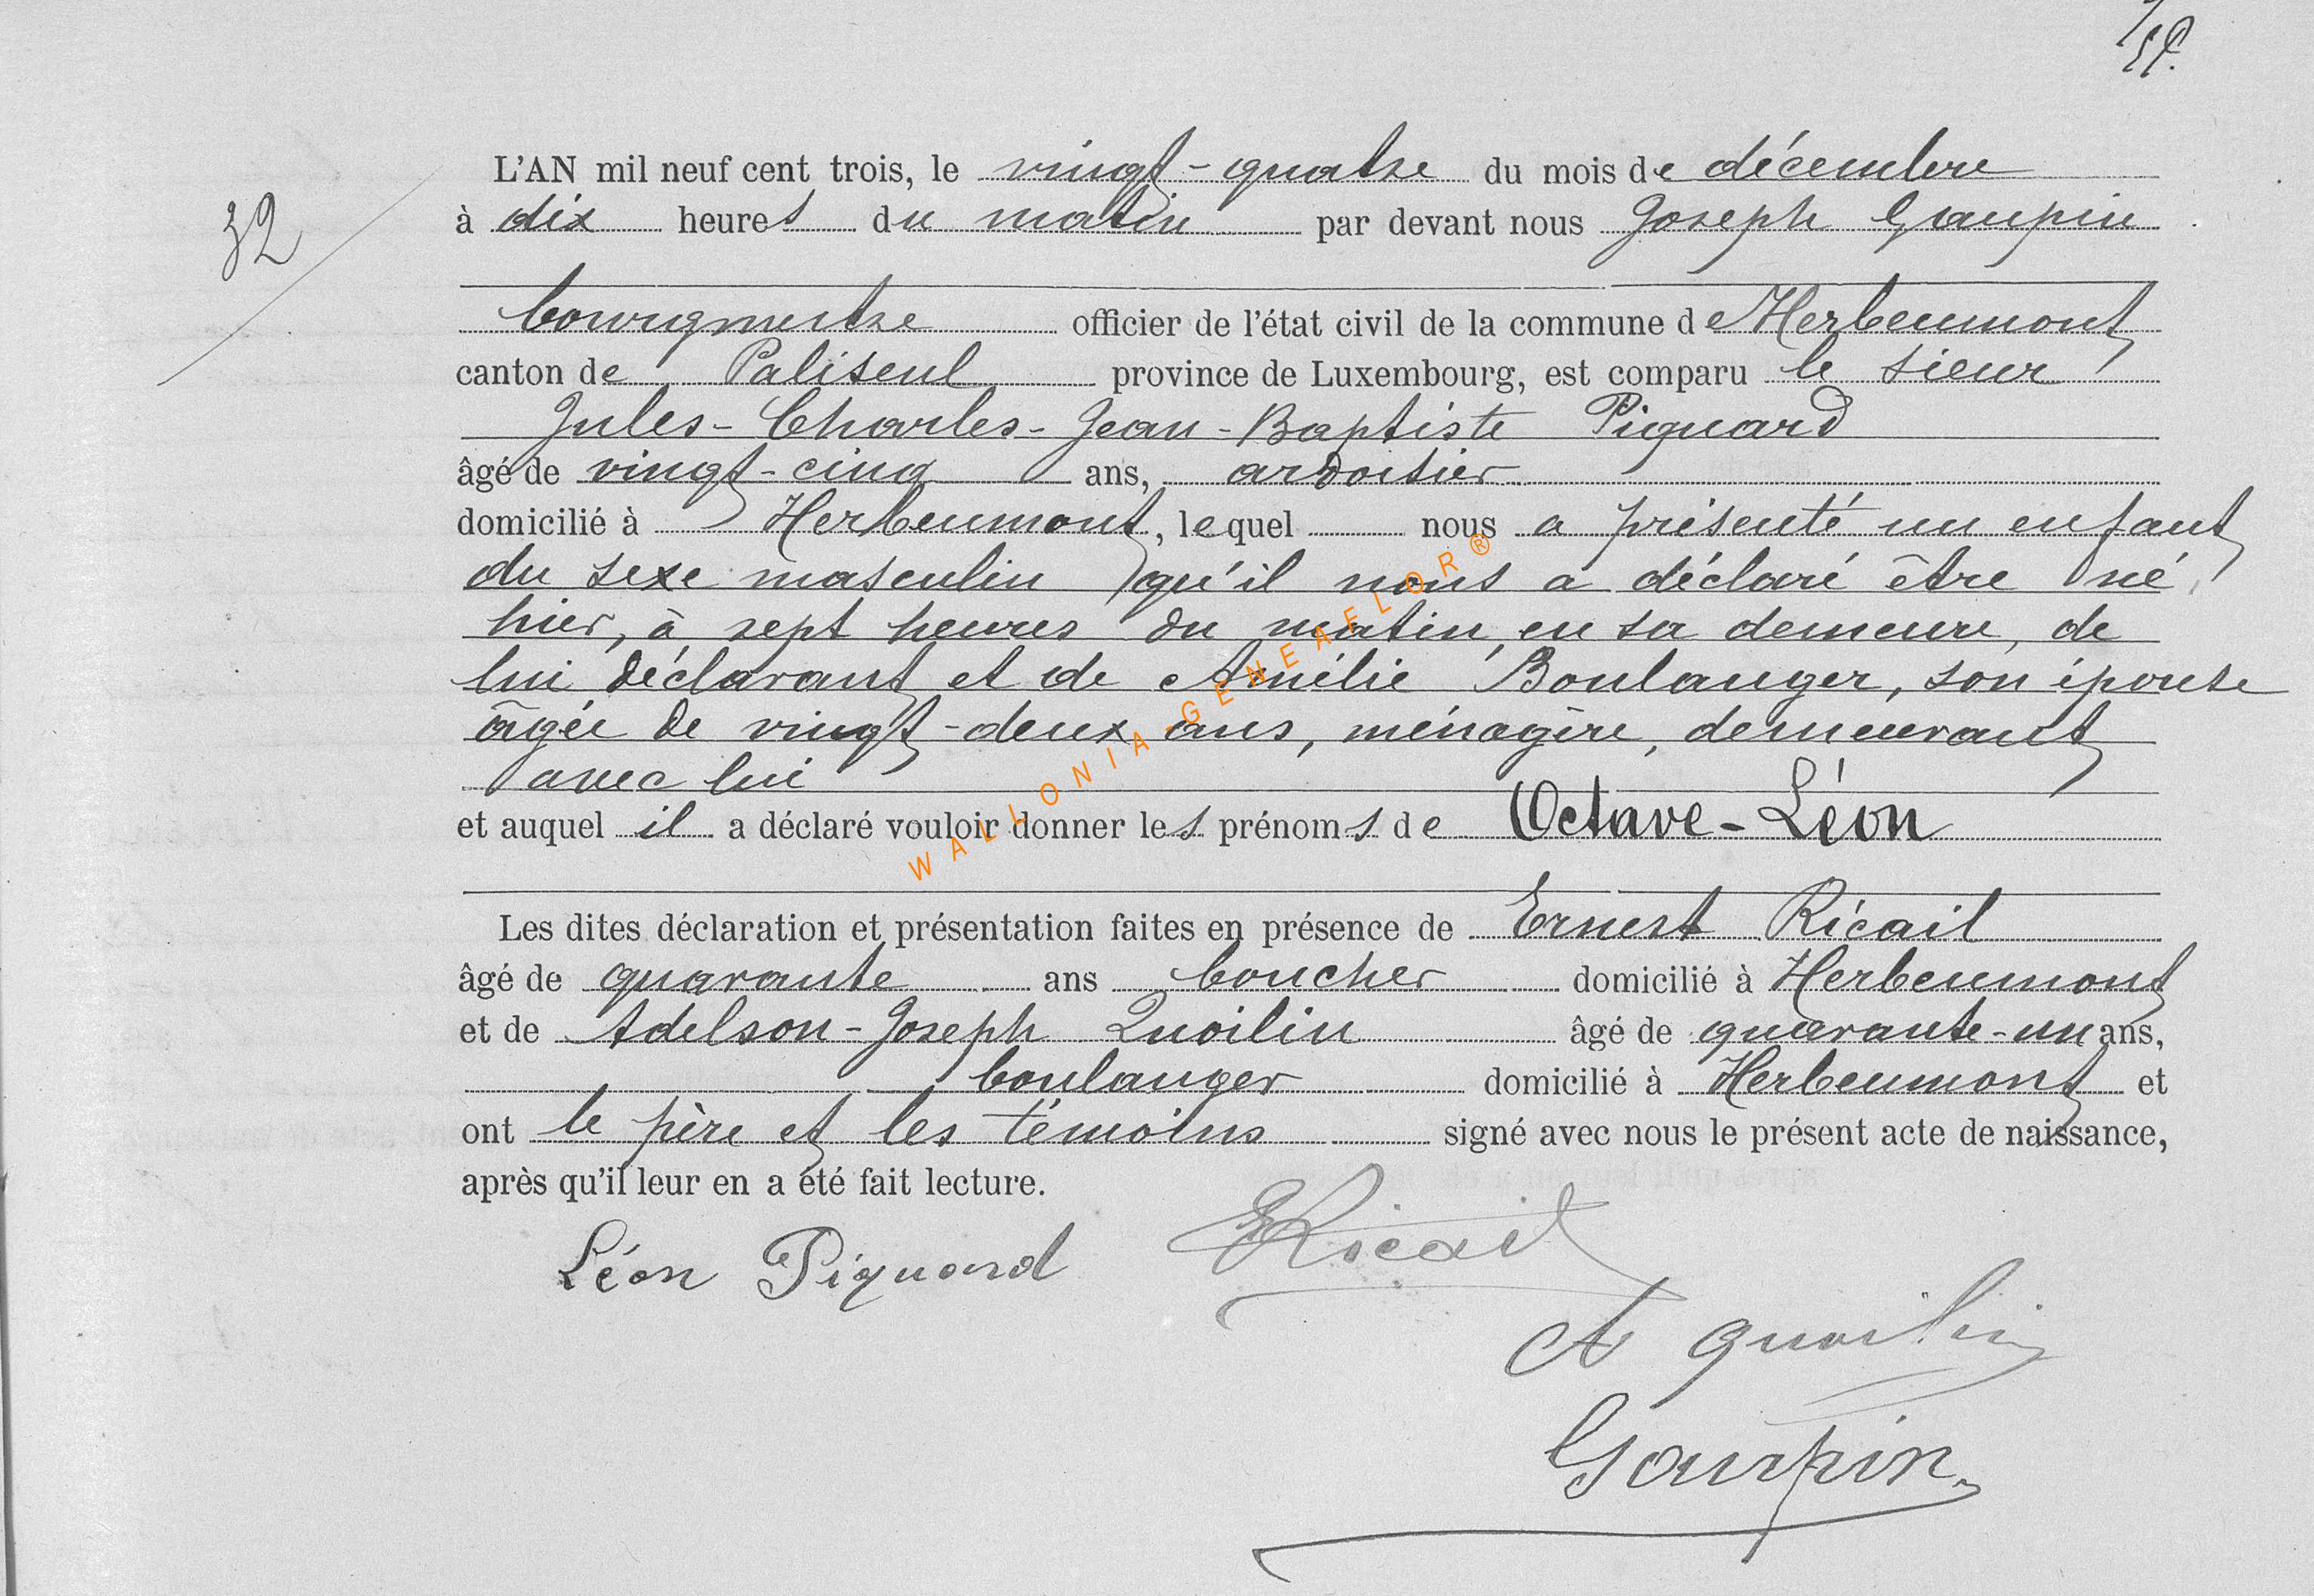 32
L'AN mil neuf cent trois, le vingt-quatre du mois de décembre
à dix heures du matin par devant nous Joseph Gaupin
bourgmestre officier de l'état civil de la commune de Herbeumont
canton de Paliseul province de Luxembourg, est comparu le sieur
Jules-Charles-Jean-Baptiste Piquard
âgé de vingt-cinq ans, ardoisier
domicilié à Herbeumont, lequel nous a présenté un enfant
du sexe masculin qu'il nous a déclaré être né
hier, à sept heures du matin, en sa demeure, de
lui déclarant et de Amélie Boulanger, son épouse
âgée de vingt-deux ans, ménagère, demeurant
avec lui
et auquel il a déclaré vouloir donner les prénoms de Octave-Léon
WALLONIA-GENEAFLOR®
Les dites déclaration et présentation faites en présence de Ernest Ricail
âgé de quarante ans boucher domicilié à Herbeumont
et de Adelson-Joseph Quoilin âgé de quarante-un ans,
boulanger domicilié à Herbeumont et
ont le père et les témoins signé avec nous le présent acte de naissance,
après qu'il leur en a été fait lecture.
Léon Piquard ERicail
A Quoilin
Gaupin